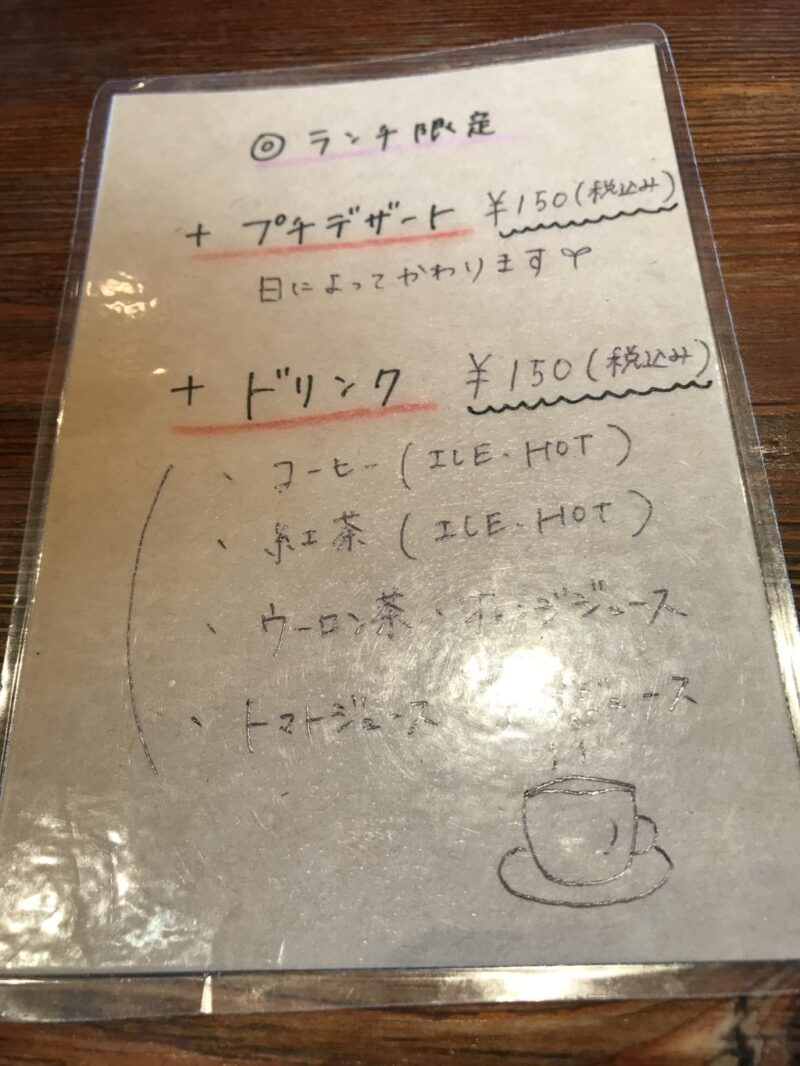 ◎ ランチ限定
+ プチデザート ¥150(税込み)
日によってかわります
+ ドリンク ¥150(税込み)
、コーヒー(ICE・HOT)
、紅茶(ICE・HOT)
、ウーロン茶、オレンジジュース
、トマトジュース ジュース